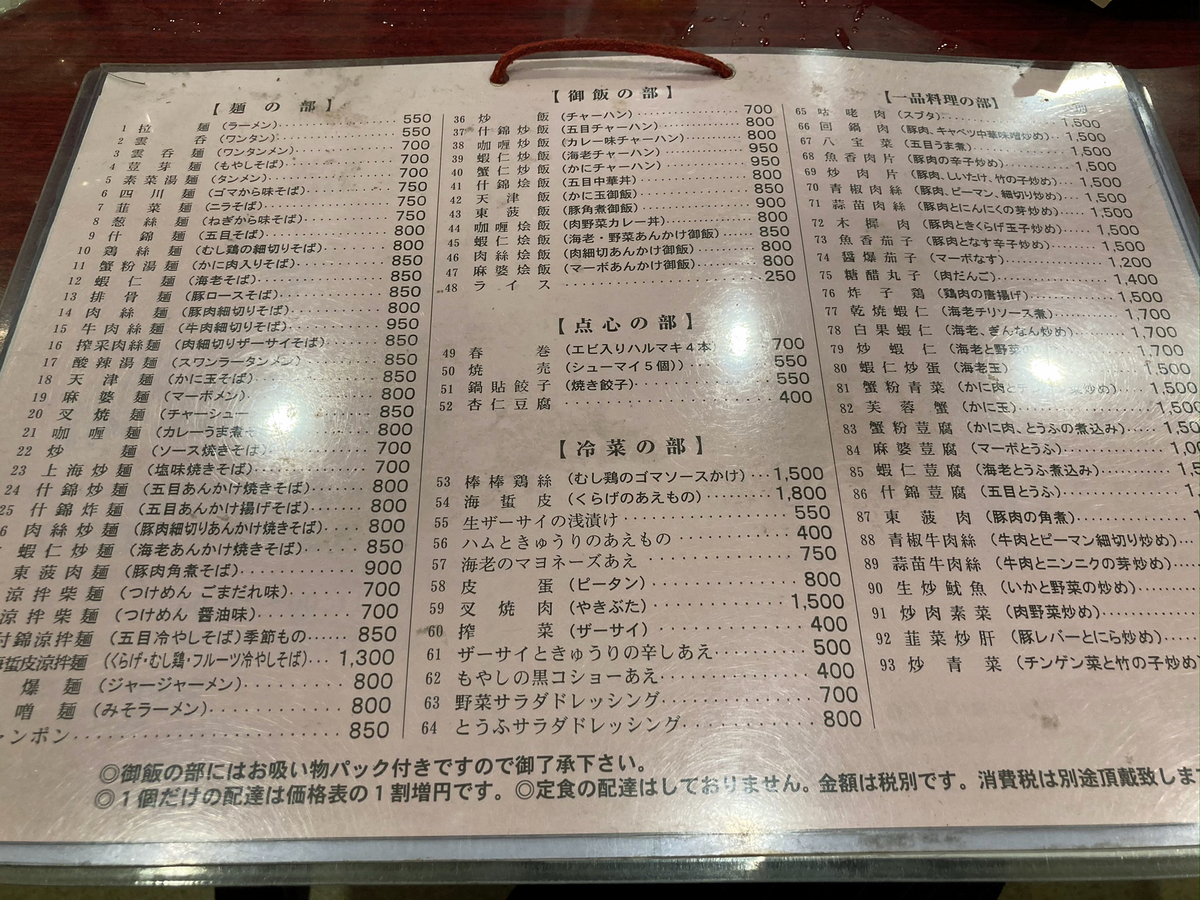 【麺の部】
1 拉麺 (ラーメン) 550
2 雲呑 (ワンタン) 550
3 雲呑麺 (ワンタンメン) 700
4 荳芽麺 (もやしそば) 700
5 素菜湯麺 (タンメン) 700
6 四川麺 (ゴマから味そば) 750
7 韮菜麺 (ニラそば) 750
8 葱絲麺 (ねぎから味そば) 750
9 什錦麺 (五目そば) 800
10 鶏絲麺 (むし鶏の細切りそば) 800
11 蟹粉湯麺 (かに肉入りそば) 850
12 蝦仁麺 (海老そば) 850
13 排骨麺 (豚ロースそば) 850
14 肉絲麺 (豚肉細切りそば) 800
15 牛肉絲麺 (牛肉細切りそば) 950
16 搾菜肉絲麺 (肉細切りザーサイそば) 850
17 酸辣湯麺 (スワンラータンメン) 850
18 天津麺 (かに玉そば) 850
19 麻婆麺 (マーボメン) 800
20 叉焼麺 (チャーシュー 850
21 咖喱麺 (カレーうま煮 800
22 炒麺 (ソース焼きそば) 700
23 上海炒麺 (塩味焼きそば) 700
24 什錦炒麺 (五目あんかけ焼きそば) 800
25 什錦炸麺 (五目あんかけ揚げそば) 800
6 肉絲炒麺 (豚肉細切りあんかけ焼きそば) 800
蝦仁炒麺 (海老あんかけ焼きそば) 850
東菠肉麺 (豚肉角煮そば) 900
涼拌柴麺 (つけめん ごまだれ味) 700
涼拌柴麺 (つけめん 醤油味) 700
什錦涼拌麺 (五目冷やしそば)季節もの 850
海蜇皮涼拌麺 (くらげ・むし鶏・フルーツ冷やしそば) 1,300
爆麺 (ジャージャーメン) 800
噌麺 (みそラーメン) 800
ンポン 850
【御飯の部】
36 炒飯 (チャーハン) 700
37 什錦炒飯 (五目チャーハン) 800
38 咖喱炒飯 (カレー味チャーハン) 800
39 蝦仁炒飯 (海老チャーハン) 950
40 蟹仁炒飯 (かにチャーハン) 950
41 什錦烩飯 (五目中華丼) 800
42 天津飯 (かに玉御飯) 850
43 東菠飯 (豚角煮御飯) 900
44 咖喱烩飯 (肉野菜カレー丼) 800
45 蝦仁烩飯 (海老・野菜あんかけ御飯) 850
46 肉絲烩飯 (肉細切あんかけ御飯) 800
47 麻婆烩飯 (マーボあんかけ御飯) 800
48 ライス 250
【点心の部】
49 春巻 (エビ入りハルマキ4本 700
50 焼売 (シューマイ5個)) 550
51 鍋貼餃子 (焼き餃子) 550
52 杏仁豆腐 400
【冷菜の部】
53 棒棒鶏絲 (むし鶏のゴマソースかけ) 1,500
54 海蜇皮 (くらげのあえもの) 1,800
55 生ザーサイの浅漬け 550
56 ハムときゅうりのあえもの 400
57 海老のマヨネーズあえ 750
58 皮蛋 (ピータン) 800
59 叉焼肉 (やきぶた) 1,500
60 搾菜 (ザーサイ) 400
61 ザーサイときゅうりの辛しあえ 500
62 もやしの黒コショーあえ 400
63 野菜サラダドレッシング 700
64 とうふサラダドレッシング 800
【一品料理の部】
65 咕咾肉 (スブタ) 1,500
66 回鍋肉 (豚肉、キャベツ中華味噌炒め) 1,500
67 八宝菜 (五目うま煮) 1,500
68 魚香肉片 (豚肉の辛子炒め) 1,500
69 炒肉片 (豚肉、しいたけ、竹の子炒め) 1,500
70 青椒肉絲 (豚肉、ピーマン、細切り炒め) 1,500
71 蒜苗肉絲 (豚肉とにんにくの芽炒め) 1,500
72 木樨肉 (豚肉ときくらげ玉子炒め) 1,500
73 魚香茄子 (豚肉となす辛子炒め) 1,500
74 醤爆茄子 (マーボなす) 1,200
75 糖醋丸子 (肉だんご) 1,400
76 炸子鶏 (鶏肉の唐揚げ) 1,500
77 乾焼蝦仁 (海老チリソース煮) 1,700
78 白果蝦仁 (海老、ぎんなん炒め) 1,700
79 炒蝦仁 (海老と野菜の 1,700
80 蝦仁炒蛋 (海老玉) 1,500
81 蟹粉青菜 (かに肉と 炒め) 1,500
82 芙蓉蟹 (かに玉) 1,500
83 蟹粉豆腐 (かに肉、とうふの煮込み) 1,50
84 麻婆荳腐 (マーボとうふ) 1,0
85 蝦仁荳腐 (海老とうふ煮込み) 1,5
86 什錦荳腐 (五目とうふ) 1,
87 東菠肉 (豚肉の角煮) 1
88 青椒牛肉絲 (牛肉とピーマン細切り炒め)
89 蒜苗牛肉絲 (牛肉とニンニクの芽炒め)
90 生炒魷魚 (いかと野菜の炒め)
91 炒肉素菜 (肉野菜炒め)
92 韮菜炒肝 (豚レバーとにら炒め)
93 炒青菜 (チンゲン菜と竹の子炒め)
◎御飯の部にはお吸い物パック付きですので御了承下さい。
◎1個だけの配達は価格表の1割増円です。◎定食の配達はしておりません。金額は税別です。消費税は別途頂戴致しま